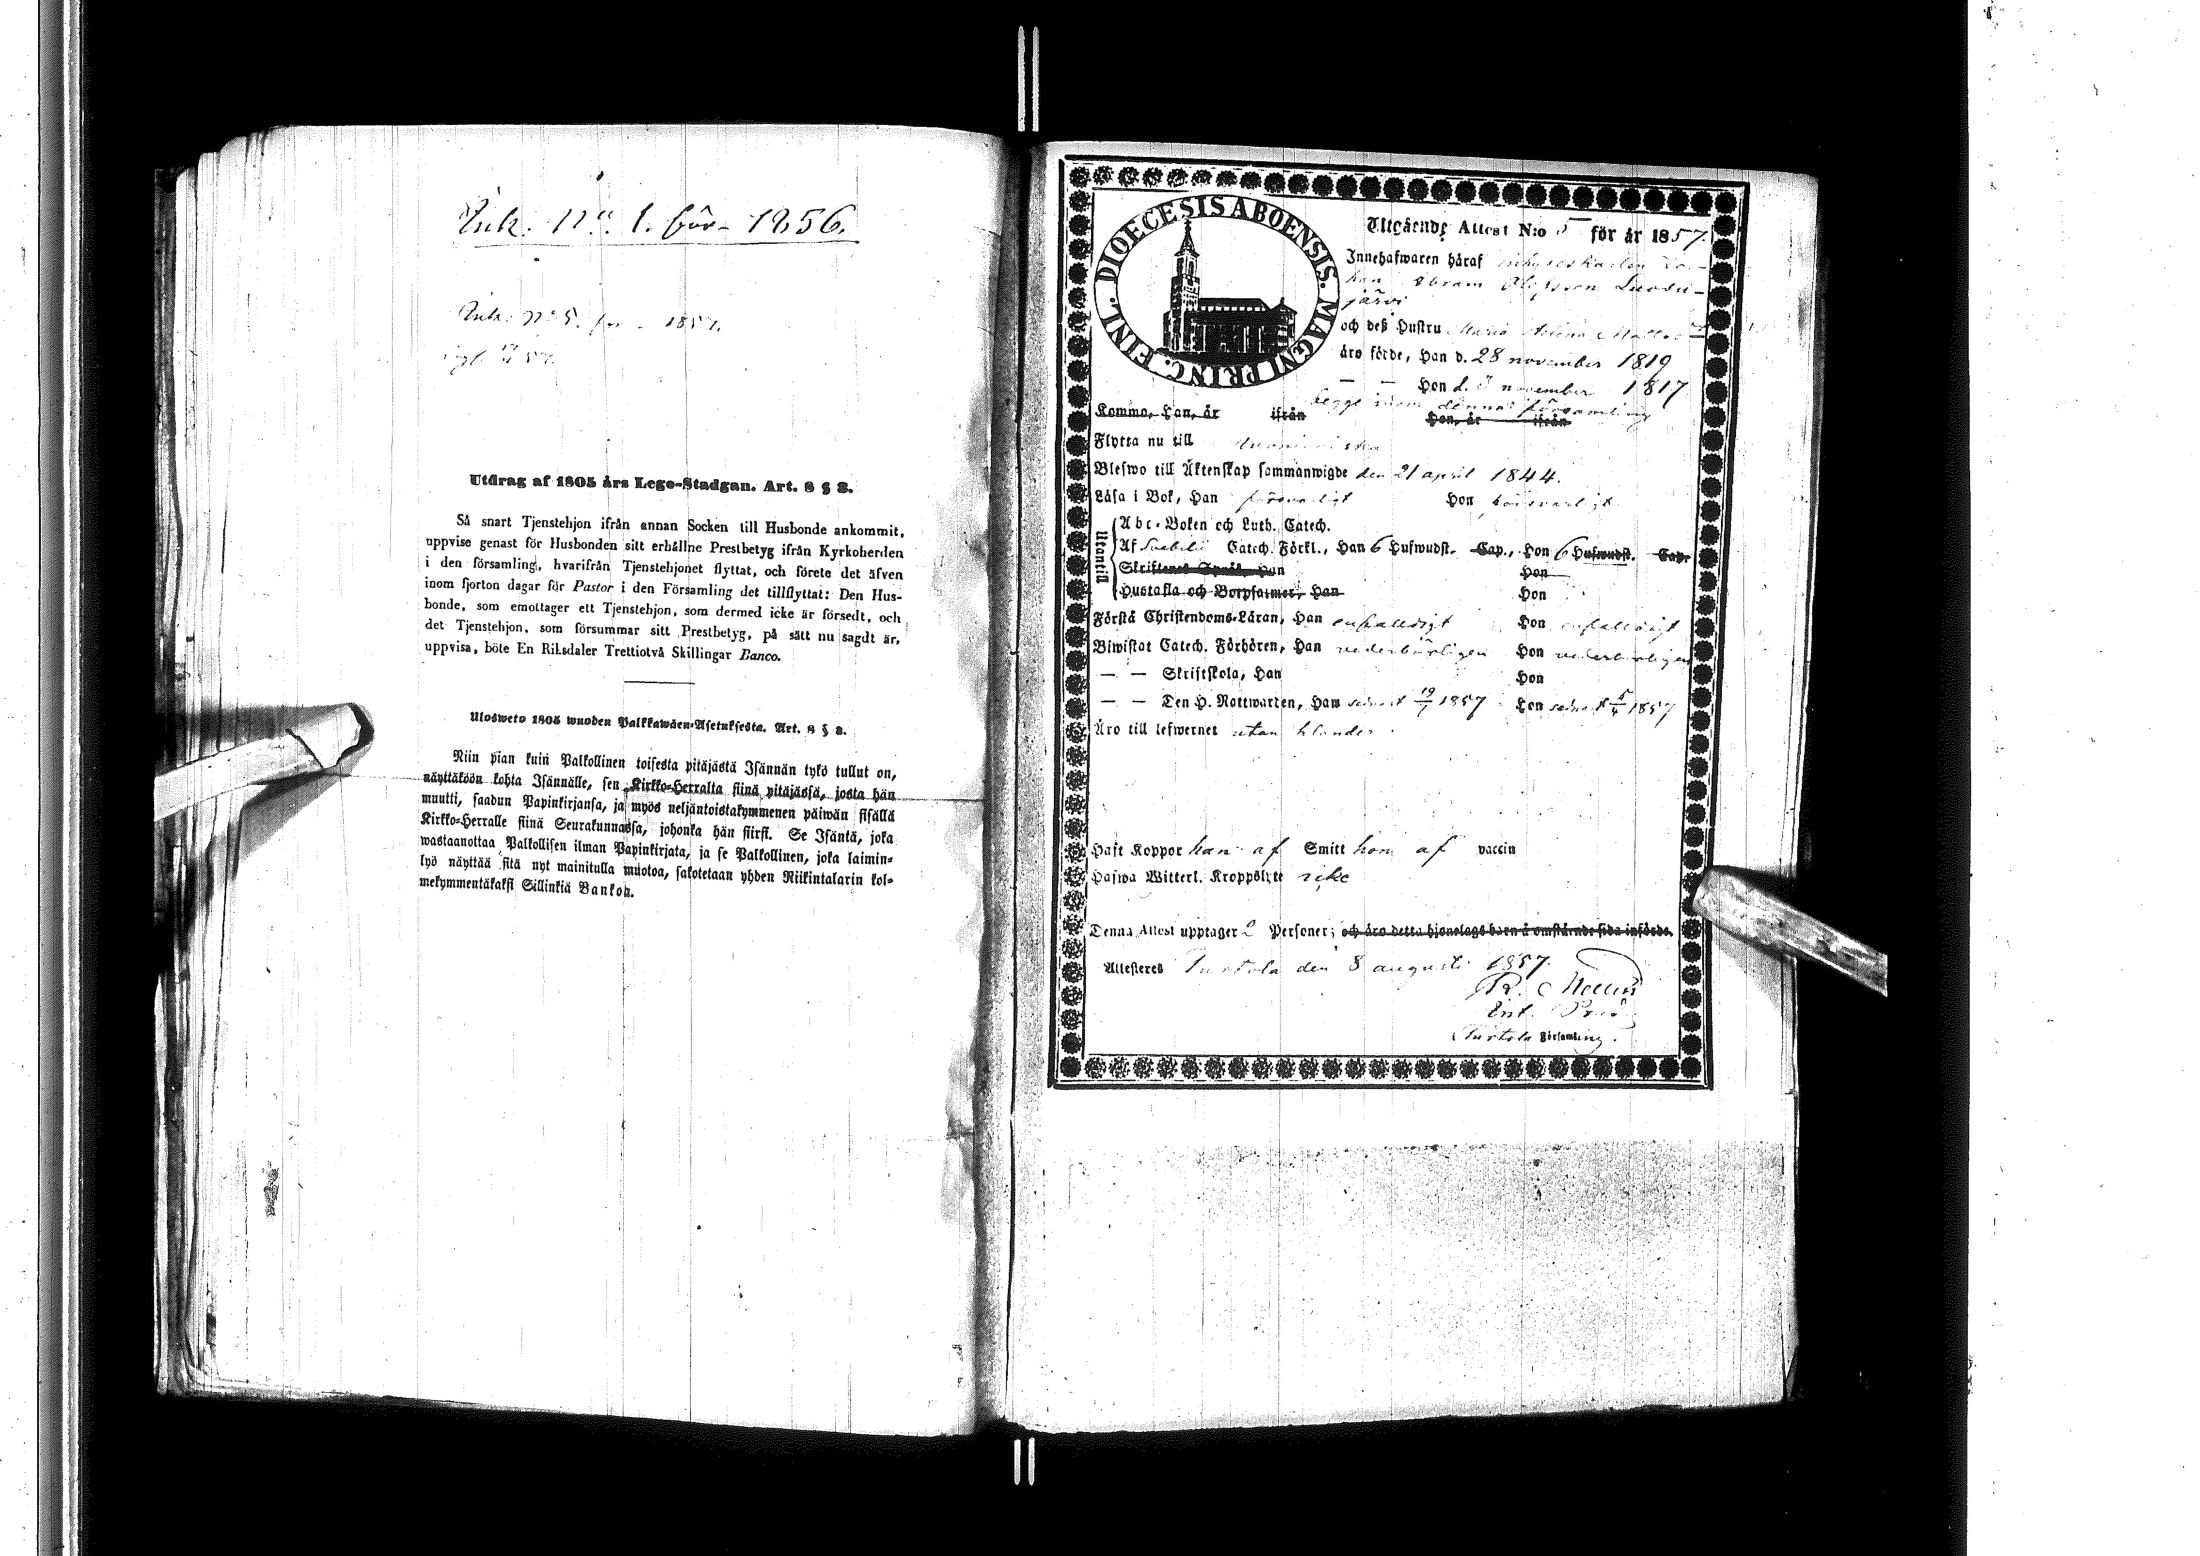 Ank. No. 1. för 1856.
Ank. No 5. för 1857.
Utdrag af 1805 års Lego-Stadgan. Art. 8 § 3.
Så snart Tjenstehjon ifrån annan Socken till Husbonde ankommit,
uppvise genast för Husbonden sitt erhållne Prestbetyg ifrån Kyrkoherden
i den församling, hvarifrån Tjenstehjonet flyttat, och förete det äfven
inom fjorton dagar för Pastor i den Församling det tillflyttat: Den Hus-
bonde, som emottager ett Tjenstehjon, som dermed icke är försedt, och
det Tjenstehjon, som försummar sitt Prestbetyg, på sätt nu sagdt är,
uppvisa, böte En Riksdaler Trettiotvå Skillingar Banco.
Ulosweto 1805 wuoden Palkkawäen-Asetuksesta. Art. 8 § 3.
Niin pian kuin Palkollinen toisesta pitäjästä Isännän tykö tullut on,
näyttäköön kohta Isännälle, sen Kirkko-Herralta siinä pitäjässä, josta hän
muutti, saadun Papinkirjansa, ja myös neljäntoistakymmenen päiwän sisällä
Kirkko-Herralle siinä Seurakunnassa, johonka hän siirsi. Se Isäntä, joka
wastaanottaa Palkollisen ilman Papinkirjata, ja se Palkollinen, joka laimin-
lyö näyttää sitä nyt mainitulla muotoa, sakotetaan yhden Riikintalarin kol-
mekymmentäkaksi Sillinkiä Bankoh.
DIOECESIS ABOENSIS. MAGNI PRINC. FINL.
Utgående Attest N:o 5 för år 1857.
Innehafwaren häraf inhyseskarlen Jo-
han Abram Olofsson Luosu-
järvi
och deß Hustru Maria
äro födde, Han d. 28 november 1819
— — Hon d. november 1817
begge inom denna församling
Komma, Han, år ifrån Hon, år ifrån
Flytta nu till
Blefwo till Äktenskap sammanwigde den 21 april 1844.
Läsa i Bok, Han försvarligt Hon försvarligt
Utantill
Abc-Boken och Luth. Catech.
Af Svebelii Catech. Förkl., Han 6 Hufwudst. Cap., Hon 6 Hufwudst. Cap.
Skriftenes Språk, Han Hon
Hustafla och Botpsalmer, Han Hon
Förstå Christendoms-Läran, Han enfaldigt Hon enfaldigt
Biwistat Catech. Förhören, Han vederbörligen Hon vederbörligen
— — Skriftskola, Han Hon
— — Den H. Nattwarden, Han senast 19/7 1857 Hon senast 1857
Äro till lefwernet utan klander.
Haft Koppor han af Smitt hon af vaccin
Hafwa Witterl. Kroppslyte icke
Denna Attest upptager 2 Personer; och äro detta hjonelags barn å omstående sida införde.
Attesteres Turtola den 8 augusti 1857.
Turtola Församling.